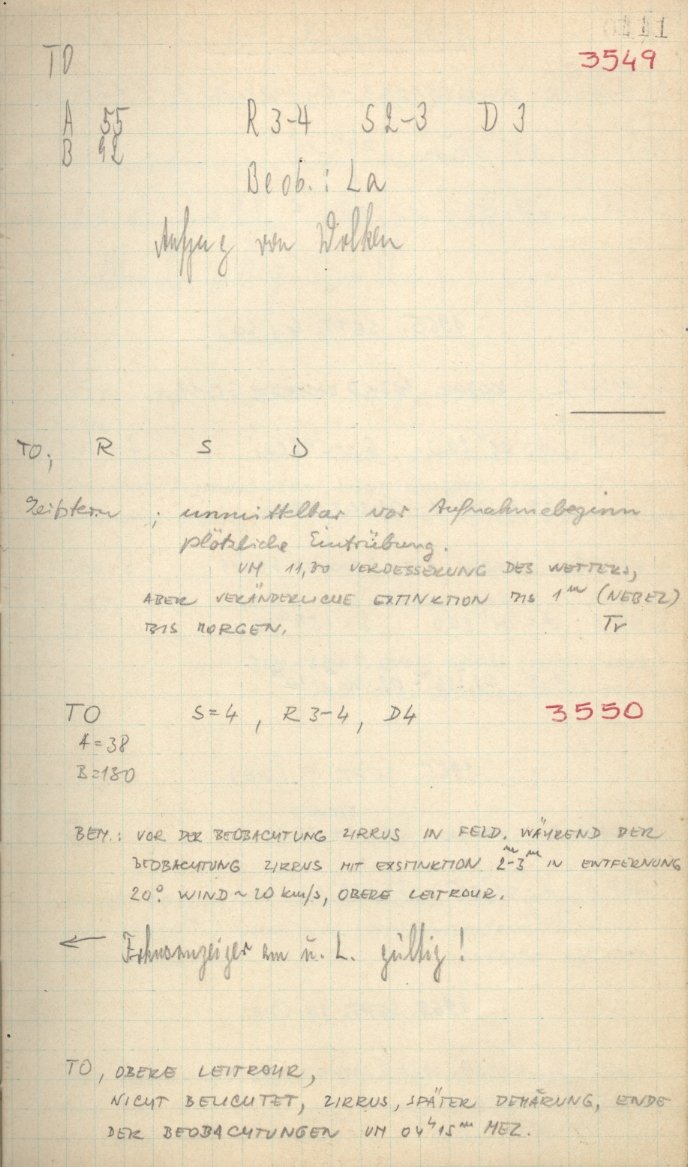 111
TO 3549
A 55 R 3-4 S 2-3 D 3
B 92
Beob.: La
Aufzug von Wolken
TO; R S D
; unmittelbar vor Aufnahmebeginn
plötzliche Eintrübung.
UM 11,30 VERBESSERUNG DES WETTERS,
ABER VERÄNDERLICHE EXTINKTION BIS 1ᵐ (NEBEL)
BIS MORGEN. Tr
TO S=4, R 3-4, D4 3550
A=38
B=180
BEM.: VOR DER BEOBACHTUNG ZIRRUS IN FELD. WÄHREND DER
BEOBACHTUNG ZIRRUS MIT EXSTINKTION 2ᵐ-3ᵐ IN ENTFERNUNG
20°. WIND ~ 20 km/s, OBERE LEITROHR.
← am u. L. gültig!
TO, OBERE LEITROHR,
NICHT BELICHTET, ZIRRUS, SPÄTER DEMÄRUNG, ENDE
DER BEOBACHTUNGEN UM 04ʰ15ᵐ MEZ.